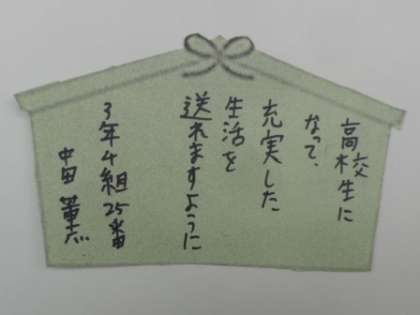 高校生に
なって、
充実した
生活を
送れますように
3年4組25番